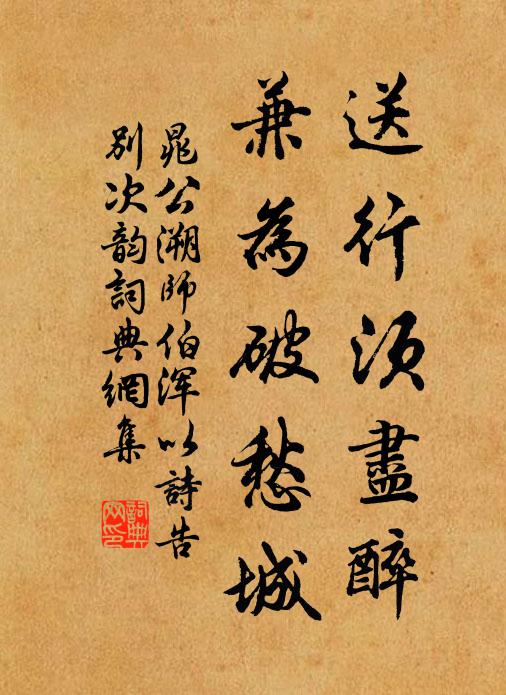 送行須盡醉
兼為破愁城
晁公溯師伯渾以詩告
別次韵詞典網集
詞典网印